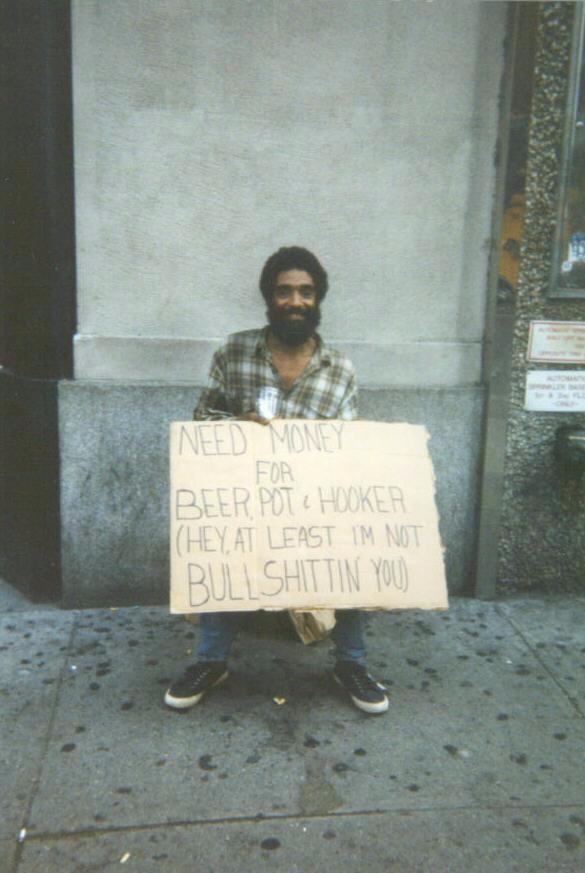 NEED MONEY
FOR
BEER, POT & HOOKER
(HEY, AT LEAST I'M NOT
BULLSHITTIN' YOU)
AUTOMATIC
SPRINKLER